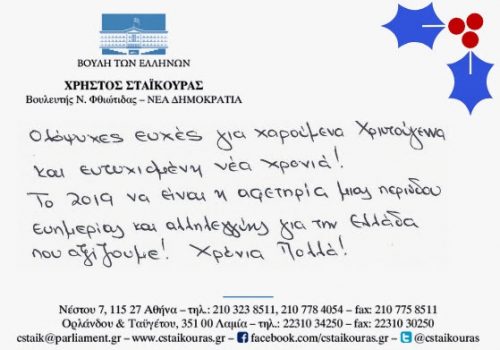 ΒΟΥΛΗ ΤΩΝ ΕΛΛΗΝΩΝ
ΧΡΗΣΤΟΣ ΣΤΑΪΚΟΥΡΑΣ
Βουλευτής Ν. Φθιώτιδας – ΝΕΑ ΔΗΜΟΚΡΑΤΙΑ
Ολόψυχες ευχές για χαρούμενα Χριστούγεννα
και ευτυχισμένη νέα χρονιά!
Το 2019 να είναι η αφετηρία μιας περιόδου
ευημερίας και αλληλεγγύης για την Ελλάδα
που αξίζουμε! Χρόνια Πολλά!
Νέστου 7, 115 27 Αθήνα – τηλ.: 210 323 8511, 210 778 4054 – fax: 210 775 8511
Ορλάνδου & Ταϋγέτου, 351 00 Λαμία – τηλ.: 22310 34250 – fax: 22310 30250
cstaik@parliament.gr – www.cstaikouras.gr – facebook.com/cstaikouras.gr – @cstaikouras